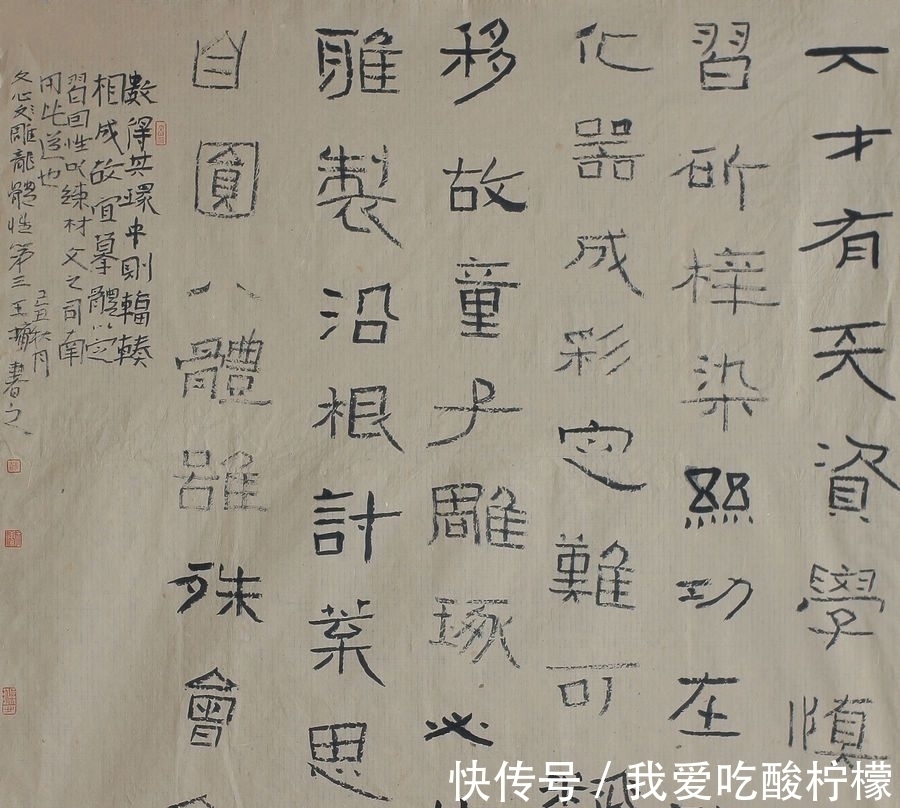 夫才有天資學慎
習斫梓染絲功在
化器成彩定難可
移故童子雕琢必
雅製沿根討葉思
自圓八體雖殊會
數得其環中則輻輳
相成故宜摹體以定
習因性以練材文之司南
用此道也
己丑秋月
文心雕龍體性第三王書之
快传号/我爱吃酸柠檬